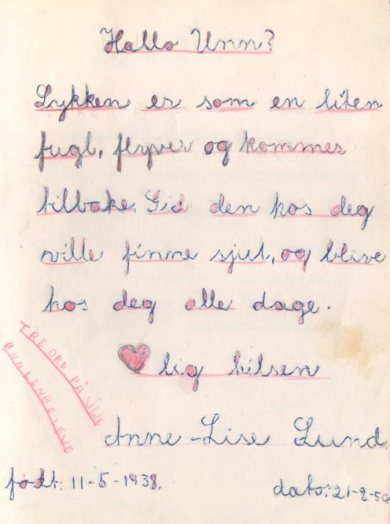 Hallo Unn?
Lykken er som en liten
fugl, flyver og kommer
tilbake. Gid den hos deg
ville finne sjul, og blive
hos deg alle dage.
lig hilsen
TRE ORD PÅ SKRÅ
Anne-Lise Lund.
født: 11-5-1938.
dato: 21-2-50